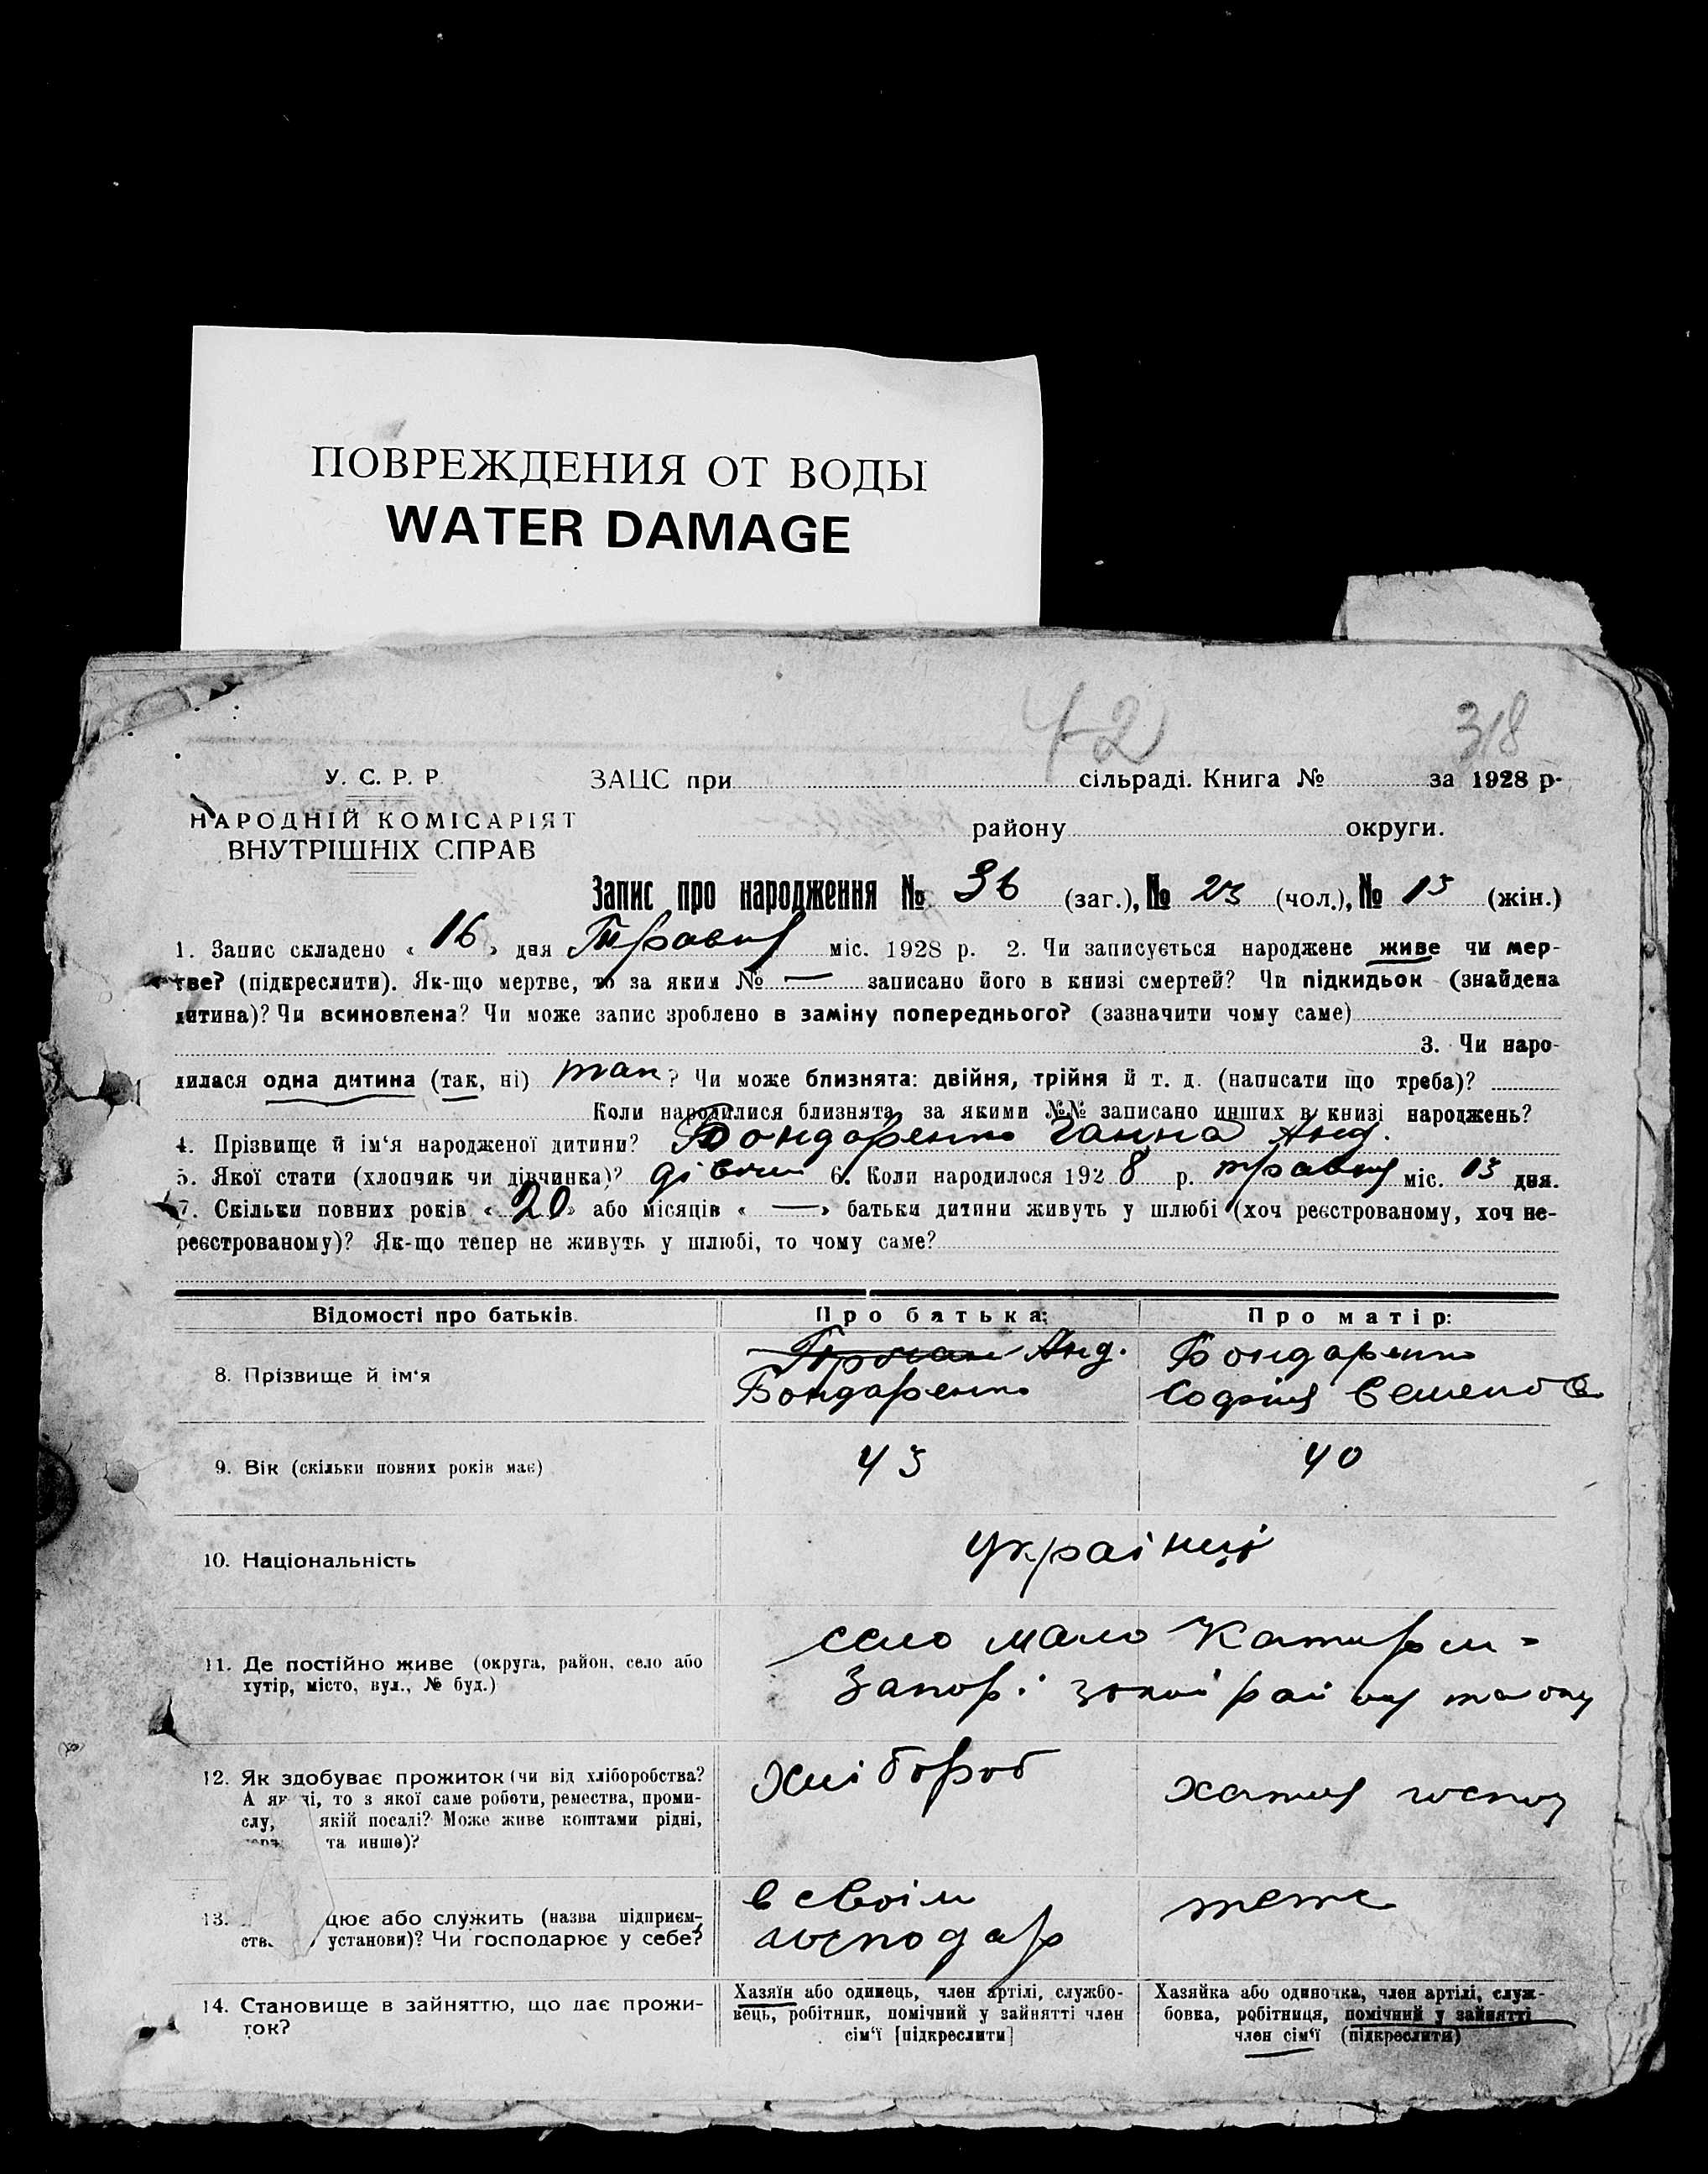 ПОВРЕЖДЕНИЯ ОТ ВОДЫ
WATER DAMAGE
42 318
У. С. Р. Р.
НАРОДНІЙ КОМІСАРІЯТ
ВНУТРІШНІХ СПРАВ
ЗАЦС при сільраді. Книга № за 1928 р.
району округи.
Запис про народження № 36 (заг.), № 23 (чол.), № 13 (жін.)
1. Запис складено « 16 » дня Травня міс. 1928 р. 2. Чи записується народжене живе чи мер-
тве? (підкреслити). Як-що мертве, то за яким № — записано його в книзі смертей? Чи підкидьок (знайдена
дитина)? Чи всиновлена? Чи може запис зроблено в заміну попереднього? (зазначити чому саме)
3. Чи наро-
дилася одна дитина (так, ні) так? Чи може близнята: двійня, трійня й т. д. (написати що треба)?
Коли народилися близнята, за якими №№ записано инших в книзі народжень?
4. Прізвище й ім'я народженої дитини? Бондаренко Ганна Анд.
5. Якої стати (хлопчик чи дівчинка)? дівчи 6. Коли народилося 1928 р. травня міс. 13 дня.
7. Скільки повних років « 20 » або місяців « — » батьки дитини живуть у шлюбі (хоч реєстрованому, хоч не-
реєстрованому)? Як-що тепер не живуть у шлюбі, то чому саме?
Відомості про батьків. Про батька: Про матір:
8. Прізвище й ім'я
Анд.
Бондаренко
Бондаренко
Софія Семенов
9. Вік (скільки повних років має) 43 40
10. Національність українці
11. Де постійно живе (округа, район, село або
хутір, місто, вул., № буд.)
село мало Катирин-
Запорізької району
12. Як здобуває прожиток (чи від хліборобства?
А як ні, то з якої саме роботи, ремества, проми-
слу, якій посаді? Може живе коштами рідні,
та инше)?
Хлібороб
хатня госпо
13. цює або служить (назва підприєм-
ств установи)? Чи господарює у себе?
в своїм
господар
теж
14. Становище в зайняттю, що дає прожи-
ток?
Хазяїн або одинець, член артілі, службо-
вець, робітник, помічний у зайнятті член
сім'ї [підкреслити]
Хазяйка або одиночка, член артілі, служ-
бовка, робітниця, помічний у зайнятті
член сім'ї (підкреслити)